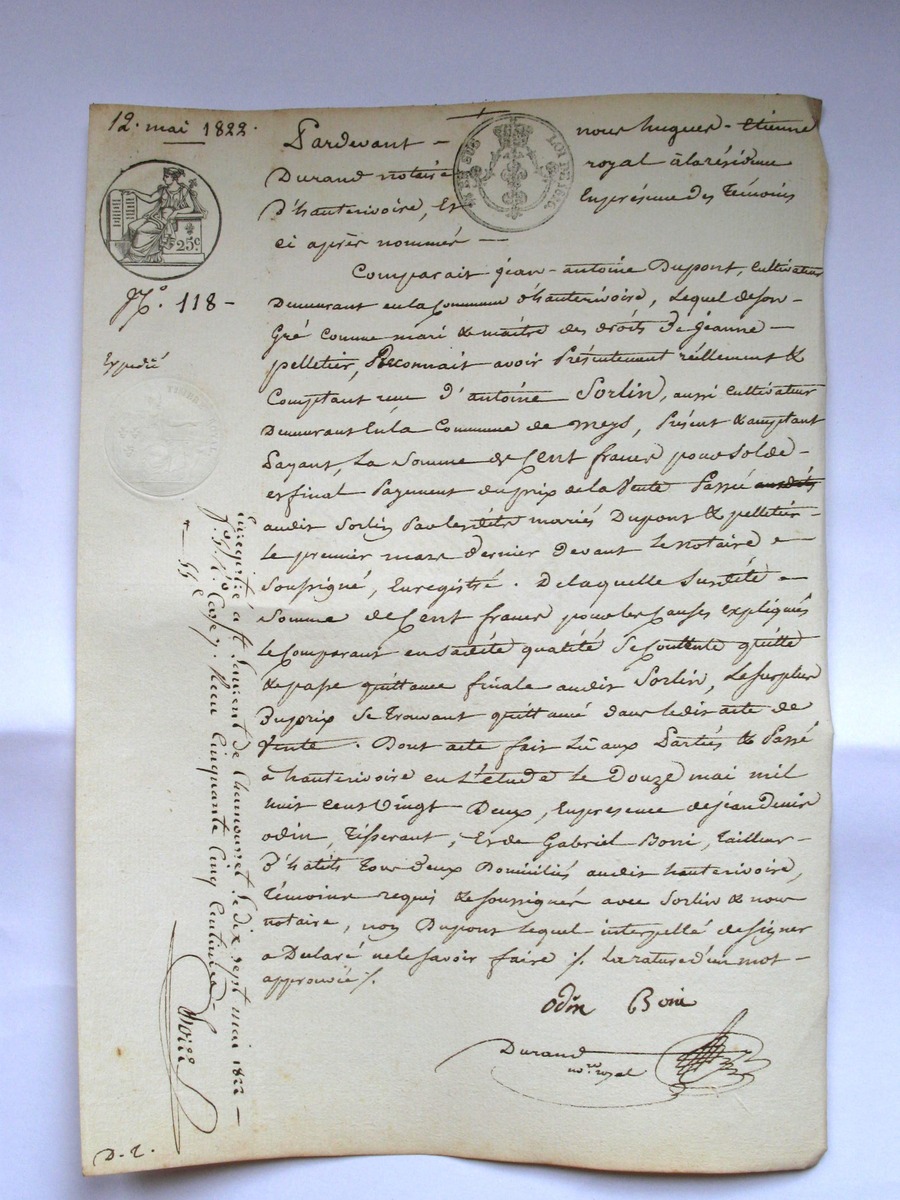 12. mai 1822.
Pardevant nous hugues-Etienne
Durand notaire royal à la résidence
D'hauterivoire, Et En présence des Témoins
ci après nommés
25c.
N.º 118-
Expédié
Comparait jean-antoine Dupont, Cultivateur
Demeurant en la Commune d'hauterivoire, Lequel de son
Gré comme mari & maître des droits De jeanne
pelletier, Reconnait avoir Présentement réellement &
Comptant reçu D'antoine Sorlin, aussi Cultivateur
Demeurant En la Commune de meys, Présent & acceptant
Payant, La Somme de Cent francs pour Solde
et final Payement du prix de la Vente Passé
audit Sorlin Par les dits mariés Dupont & pelletier
le premier mars dernier devant le notaire
Soussigné, Enregistré. De laquelle Susdite
Somme de Cent francs pour les Causes Expliqués
le Comparant en sadite qualité Se Contente quitte
& passe quittance finale audit Sorlin, Le surplus
Du prix Se Trouvant quittancé dans ledit acte de
Vente. Dont acte fait Lû aux Parties & Passé
à hauterivoire en L'Etude le Douze mai mil
huit cent Vingt Deux, En présence de jean Denis
odin, Tisserant, Et de Gabriel Boni, Tailleur
D'habits Tous deux Domiciliés audit hauterivoire,
Témoins requis & soussignés avec Sorlin & nous
notaire, non Dupont lequel interpellé de signer
a Declaré ne le Savoir faire ./. La rature d'un mot
approuvée ./.
odin Boni
Durand
no.re royal
Enregistré à St Laurent de Chamousset le dix sept mai 1822
Reçu Cinquante Cinq Centimes
D. 2.